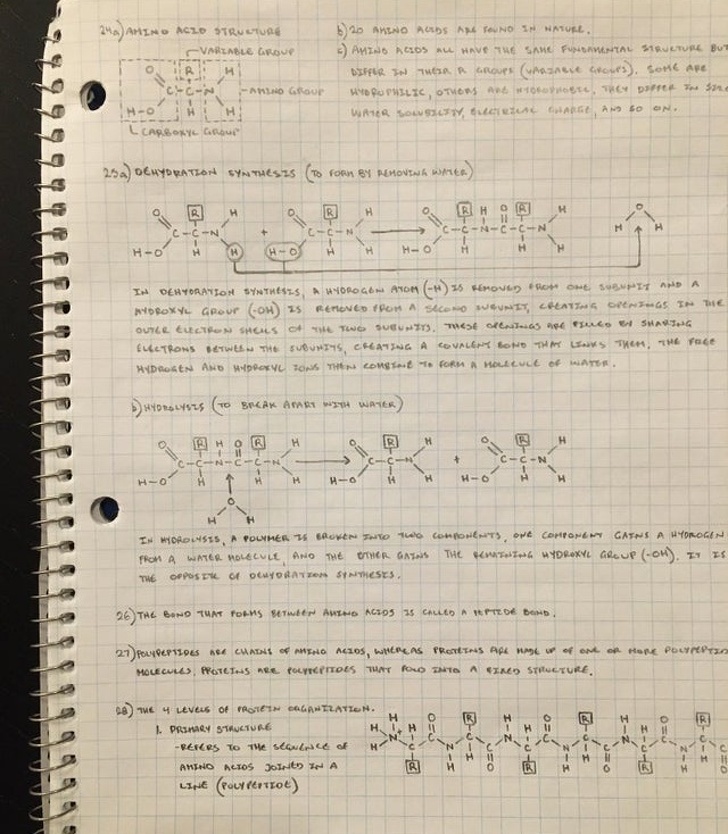 24a) AMINO ACID STRUCTURE
VARIABLE GROUP
O R H
C-C-N
H-O H H
AMINO GROUP
CARBOXYL GROUP
b) 20 AMINO ACIDS ARE FOUND IN NATURE.
c) AMINO ACIDS ALL HAVE THE SAME FUNDAMENTAL STRUCTURE BUT
DIFFER IN THEIR R GROUPS (VARIABLE GROUPS). SOME ARE
HYDROPHILIC, OTHERS ARE HYDROPHOBIC, THEY DIFFER IN
WATER SOLUBILITY, ELECTRICAL CHARGE, AND SO ON.
25a) DEHYDRATION SYNTHESIS (TO FORM BY REMOVING WATER)
O R H O R H O R H O R H O
C-C-N + C-C-N C-C-N-C-C-N H H
H-O H H H-O H H H-O H H H
IN DEHYDRATION SYNTHESIS, A HYDROGEN ATOM (-H) IS REMOVED FROM ONE SUBUNIT AND A
HYDROXYL GROUP (-OH) IS REMOVED FROM A SECOND SUBUNIT, CREATING OPENINGS IN THE
OUTER ELECTRON SHELLS OF THE TWO SUBUNITS. THESE OPENINGS ARE FILLED BY SHARING
ELECTRONS BETWEEN THE SUBUNITS, CREATING A COVALENT BOND THAT LINKS THEM. THE FREE
HYDROGEN AND HYDROXYL IONS THEN COMBINE TO FORM A MOLECULE OF WATER.
b) HYDROLYSIS (TO BREAK APART WITH WATER)
O R H O R H O R H O R H
C-C-N-C-C-N C-C-N + C-C-N
H-O H H H H-O H H H-O H H
O
H H
IN HYDROLYSIS, A POLYMER IS BROKEN INTO TWO COMPONENTS, ONE COMPONENT GAINS A HYDROGEN
FROM A WATER MOLECULE, AND THE OTHER GAINS THE REMAINING HYDROXYL GROUP (-OH). IT IS
THE OPPOSITE OF DEHYDRATION SYNTHESIS.
26) THE BOND THAT FORMS BETWEEN AMINO ACIDS IS CALLED A PEPTIDE BOND.
27) POLYPEPTIDES ARE CHAINS OF AMINO ACIDS, WHEREAS PROTEINS ARE MADE UP OF ONE OR MORE POLYPEPTID
MOLECULES, PROTEINS ARE POLYPEPTIDES THAT FOLD INTO A FIXED STRUCTURE.
28) THE 4 LEVELS OF PROTEIN ORGANIZATION.
1. PRIMARY STRUCTURE
-REFERS TO THE SEQUENCE OF
AMINO ACIDS JOINED IN A
LINE (POLYPEPTIDE)